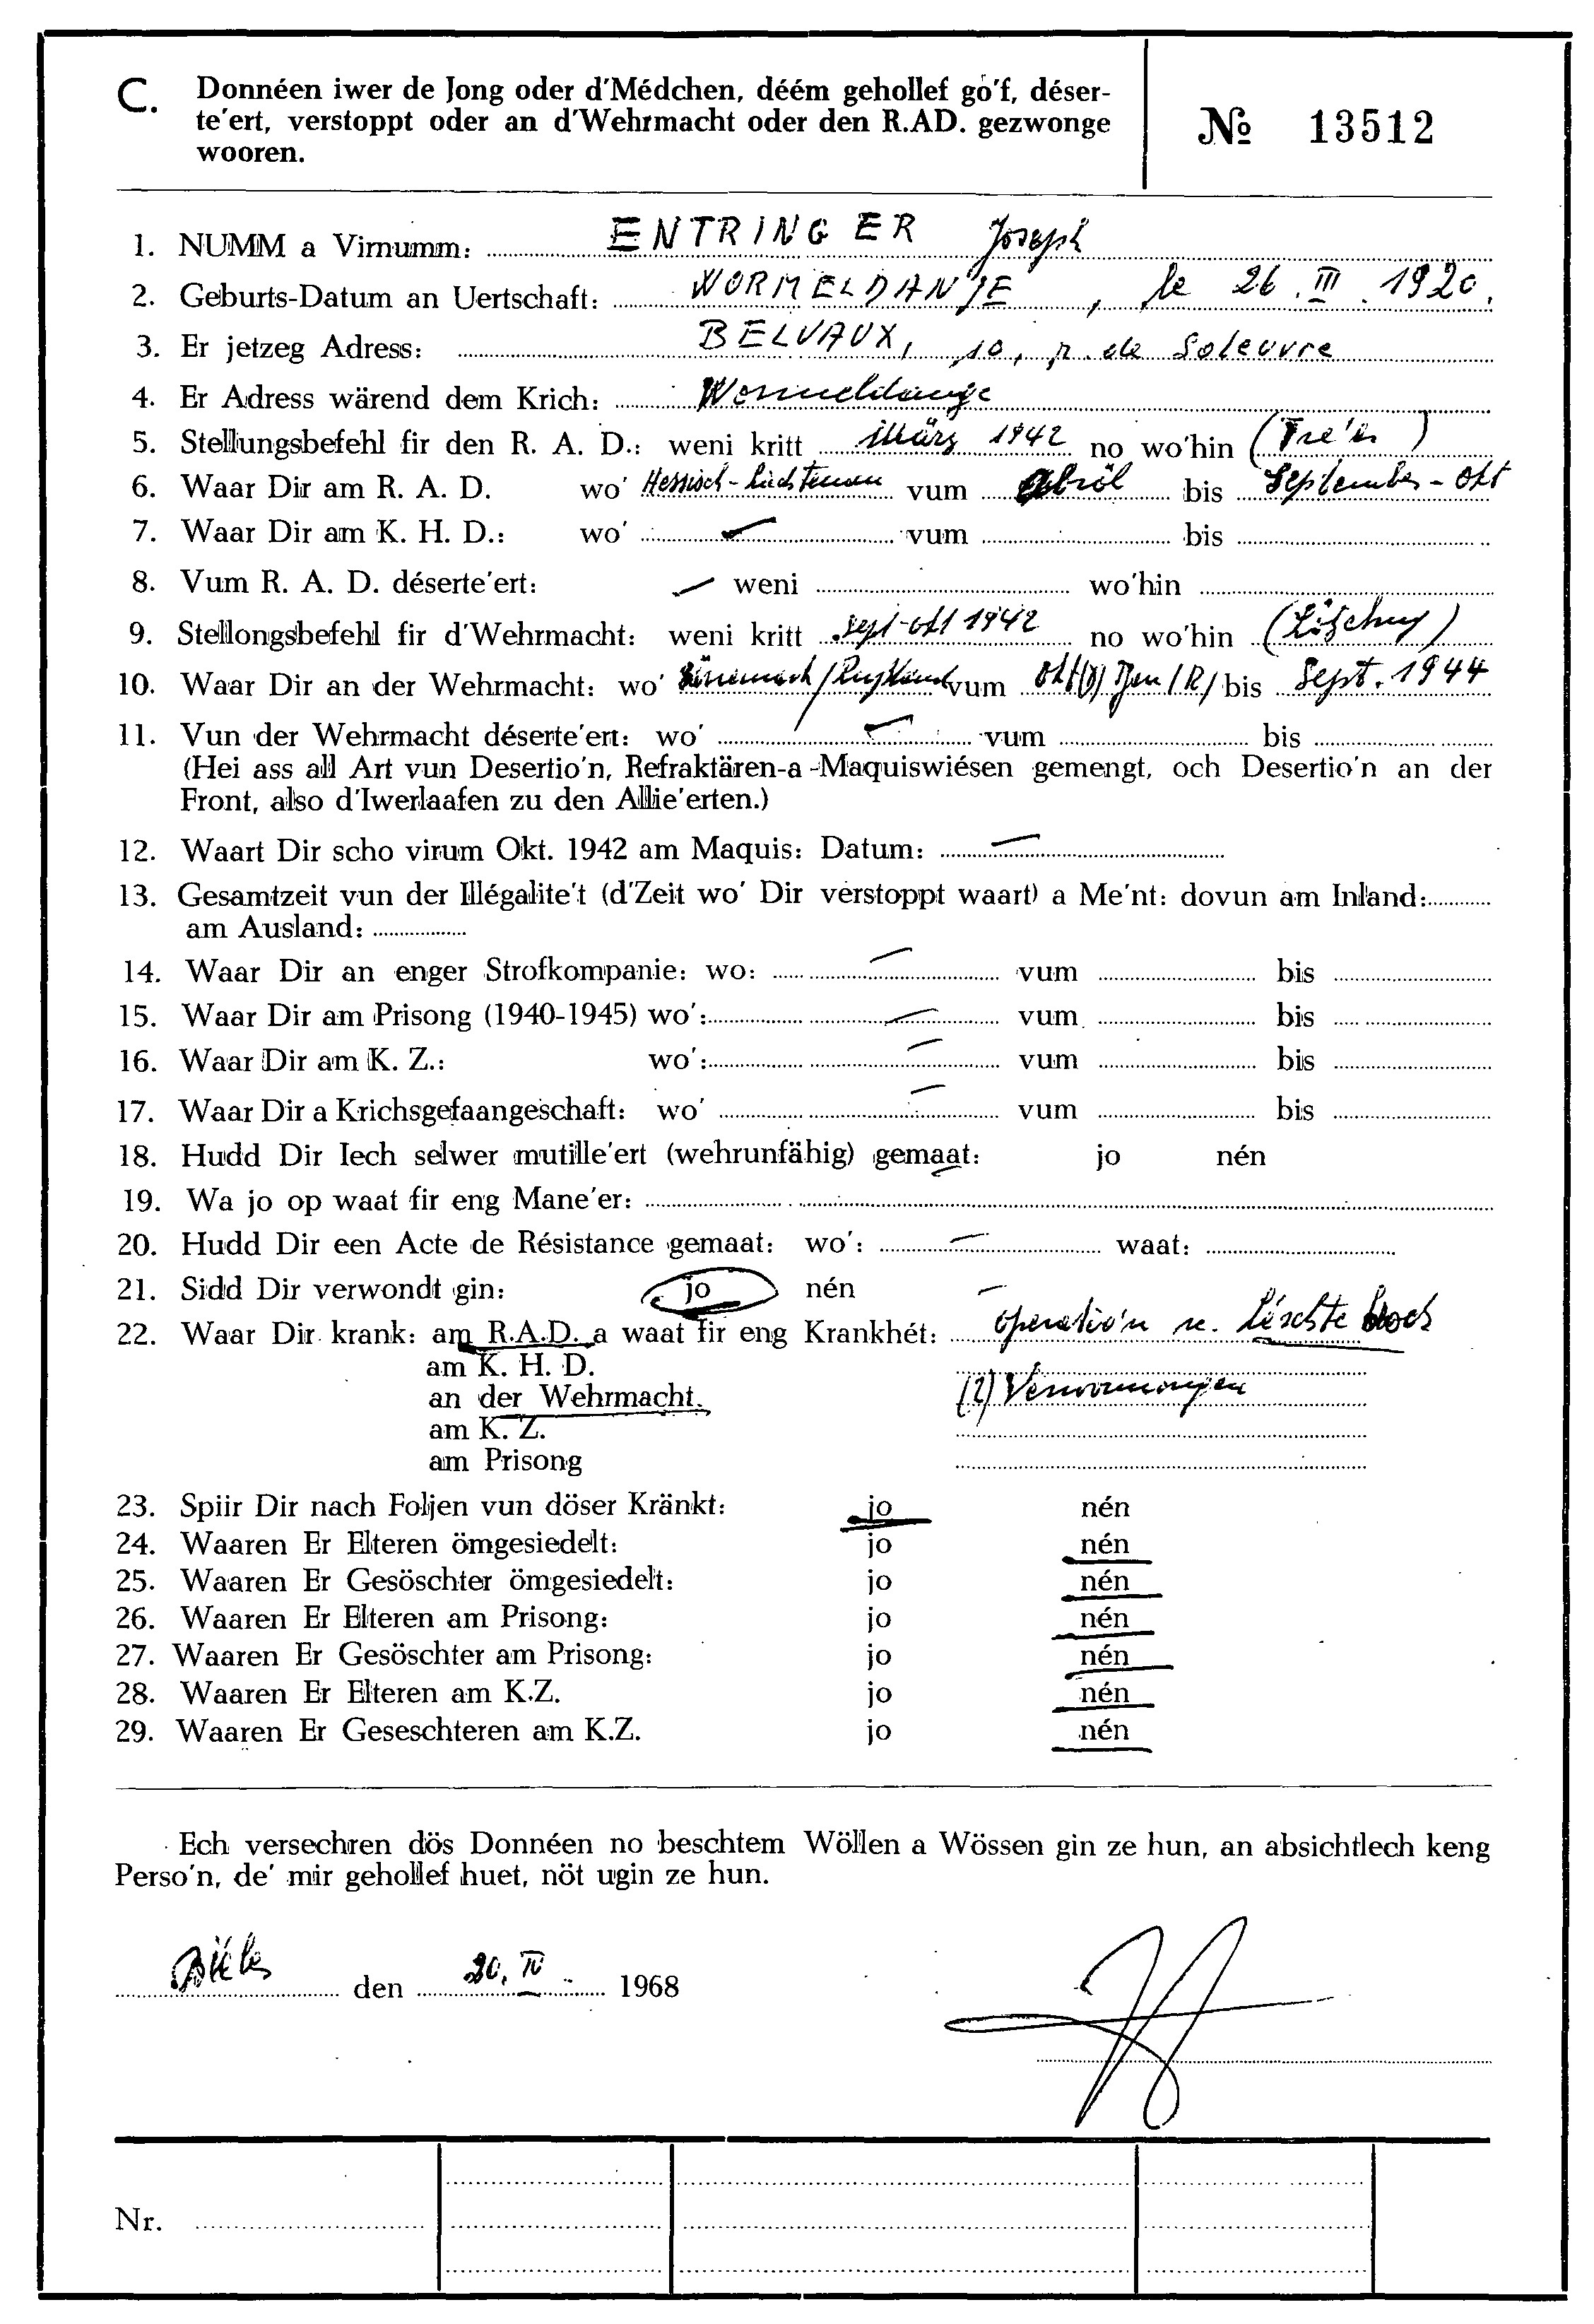 C. Donnéen iwer de Jong oder d'Médchen, déém gehollef go'f, déser-
te'ert, verstoppt oder an d'Wehrmacht oder den R.AD. gezwonge
wooren.
№ 13512
1. NUMM a Virnumm: ENTRINGER Joseph
2. Geburts-Datum an Uertschaft: WORMELDANGE, le 26.III.1920.
3. Er jetzeg Adress: BELVAUX, 10, r. de Soleuvre
4. Er Adress wärend dem Krich: Wormeldange
5. Stellungsbefehl fir den R. A. D.: weni kritt März 1942 no wo'hin (Tre'er)
6. Waar Dir am R. A. D. wo' Hessisch-Liechtenau vum Abröl bis September-Okt
7. Waar Dir am K. H. D.: wo' vum bis
8. Vum R. A. D. déserte'ert: — weni wo'hin
9. Stellongsbefehl fir d'Wehrmacht: weni kritt Sept-Okt 1942 no wo'hin
10. Waar Dir an der Wehrmacht: wo' Dänemark/Rußland vum bis Sept. 1944
11. Vun der Wehrmacht déserte'ert: wo' vum bis
(Hei ass all Art vun Desertio'n, Refraktären-a-Maquiswiésen gemengt, och Desertio'n an der
Front, also d'Iwerlaafen zu den Allie'erten.)
12. Waart Dir scho virum Okt. 1942 am Maquis: Datum: —
13. Gesamtzeit vun der Illégalite't (d'Zeit wo' Dir verstoppt waart) a Me'nt: dovun am Inland:
am Ausland:
14. Waar Dir an enger Strofkompanie: wo: — vum bis
15. Waar Dir am Prisong (1940-1945) wo': — vum bis
16. Waar Dir am K. Z.: wo': — vum bis
17. Waar Dir a Krichsgefaangeschaft: wo' — vum bis
18. Hudd Dir Iech selwer mutille'ert (wehrunfähig) gemaat: jo nén
19. Wa jo op waat fir eng Mane'er:
20. Hudd Dir een Acte de Résistance gemaat: wo': — waat: 
21. Sidd Dir verwondt gin: jo nén —
22. Waar Dir krank: am R.A.D. a waat fir eng Krankhét: Operatio'n
am K. H. D.
an der Wehrmacht. (2)
am K. Z.
am Prisong
23. Spiir Dir nach Foljen vun döser Kränkt: jo nén
24. Waaren Er Elteren ömgesiedelt: jo nén
25. Waaren Er Gesöschter ömgesiedelt: jo nén
26. Waaren Er Elteren am Prisong: jo nén
27. Waaren Er Gesöschter am Prisong: jo nén
28. Waaren Er Elteren am K.Z. jo nén
29. Waaren Er Geseschteren am K.Z. jo nén
Ech versechren dös Donnéen no beschtem Wöllen a Wössen gin ze hun, an absichtlech keng
Perso'n, de' mir gehollef huet, nöt ugin ze hun.
Bieles den 20. IV 1968
Nr.